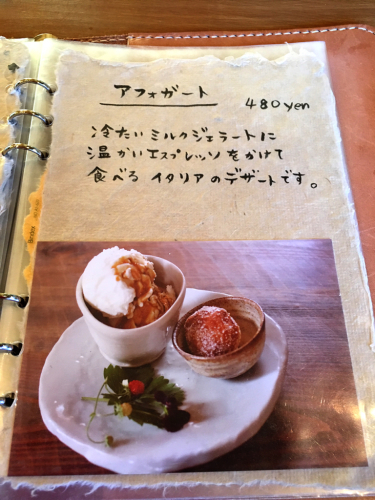 アフォガート
480yen
冷たいミルクジェラートに
温かいエスプレッソをかけて
食べる イタリアのデザートです。